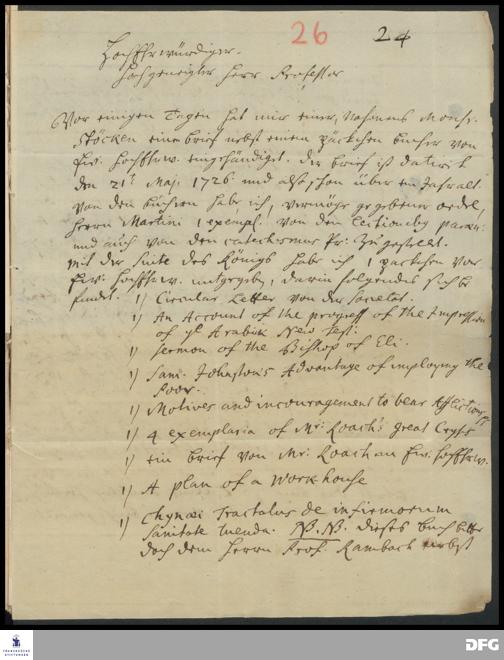 26 24
HochEhrwürdiger
Hochgeneigter Herr Professor
Vor einigen Tagen hat mir einer, Nahmens Mons.
Stöcken einen brief nebst einem päckchen bücher von
Ew. HochEhrw. eingehändigt. Der brief ist datirt
den 21t Maj. 1726 und also schon über ein Jahr alt.
Von den büchern habe ich, vermöge gegebener ordre,
Herrn Martini 1 exempl. von den
und auch von dem catechismus zugestellt.
Mit der Suite des Königs habe ich 1 päckchen vor
Ew. HochEhrw. mitgegeben, darin folgendes sich be
findet. 1) Circular Letter von der Societät.
1) An Account of the progress of the Impression
of ye Arabick New Test.
1) Sermon of the Bishop of Eli.
1) Sam. Johnston's Advantage of imploying the
Poor.
1) Motives and incouragement to bear Afflictions
1) 4 exemplaria of Mr. Roach's great Crisis
1) ein brief von Mr. Roach an Ew. HochEhrw.
1) A plan of a Workhouse
1) Chynæi Tractatus de infirmorum
Sanitate tuenda. NB. NB. dieses buch bitte
doch dem Herrn Prof. Rambach nebst
FRANCKESCHE STIFTUNGEN
DFG